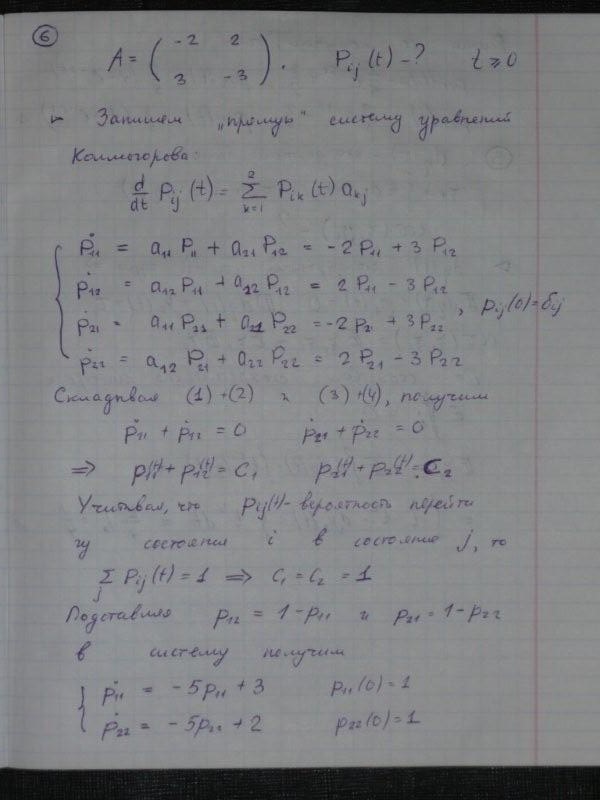 6
A = ( -2 2
3 -3 ). P_ij(t) - ? t ≥ 0
Запишем "прямую" систему уравнений
Колмогорова:
d/dt P_ij(t) = Σ_{k=1}^{2} P_ik(t) a_kj
{ ṗ_11 = a_11 P_11 + a_21 P_12 = -2 P_11 + 3 P_12
ṗ_12 = a_12 P_11 + a_22 P_12 = 2 P_11 - 3 P_12
ṗ_21 = a_11 P_21 + a_21 P_22 = -2 P_21 + 3 P_22 , p_ij(0) = δ_ij
ṗ_22 = a_12 P_21 + a_22 P_22 = 2 P_21 - 3 P_22
Складывая (1)+(2) и (3)+(4), получим
ṗ_11 + ṗ_12 = 0 ṗ_21 + ṗ_22 = 0
⇒ p_11(t) + p_12(t) = C_1 p_21(t) + p_22(t) = C_2
Учитывая, что p_ij(t) - вероятность перейти
из состояния i в состояние j, то
Σ_j P_ij(t) = 1 ⇒ C_1 = C_2 = 1
Подставляя p_12 = 1 - p_11 и p_21 = 1 - p_22
в систему получим
{ ṗ_11 = -5p_11 + 3 p_11(0) = 1
ṗ_22 = -5p_22 + 2 p_22(0) = 1